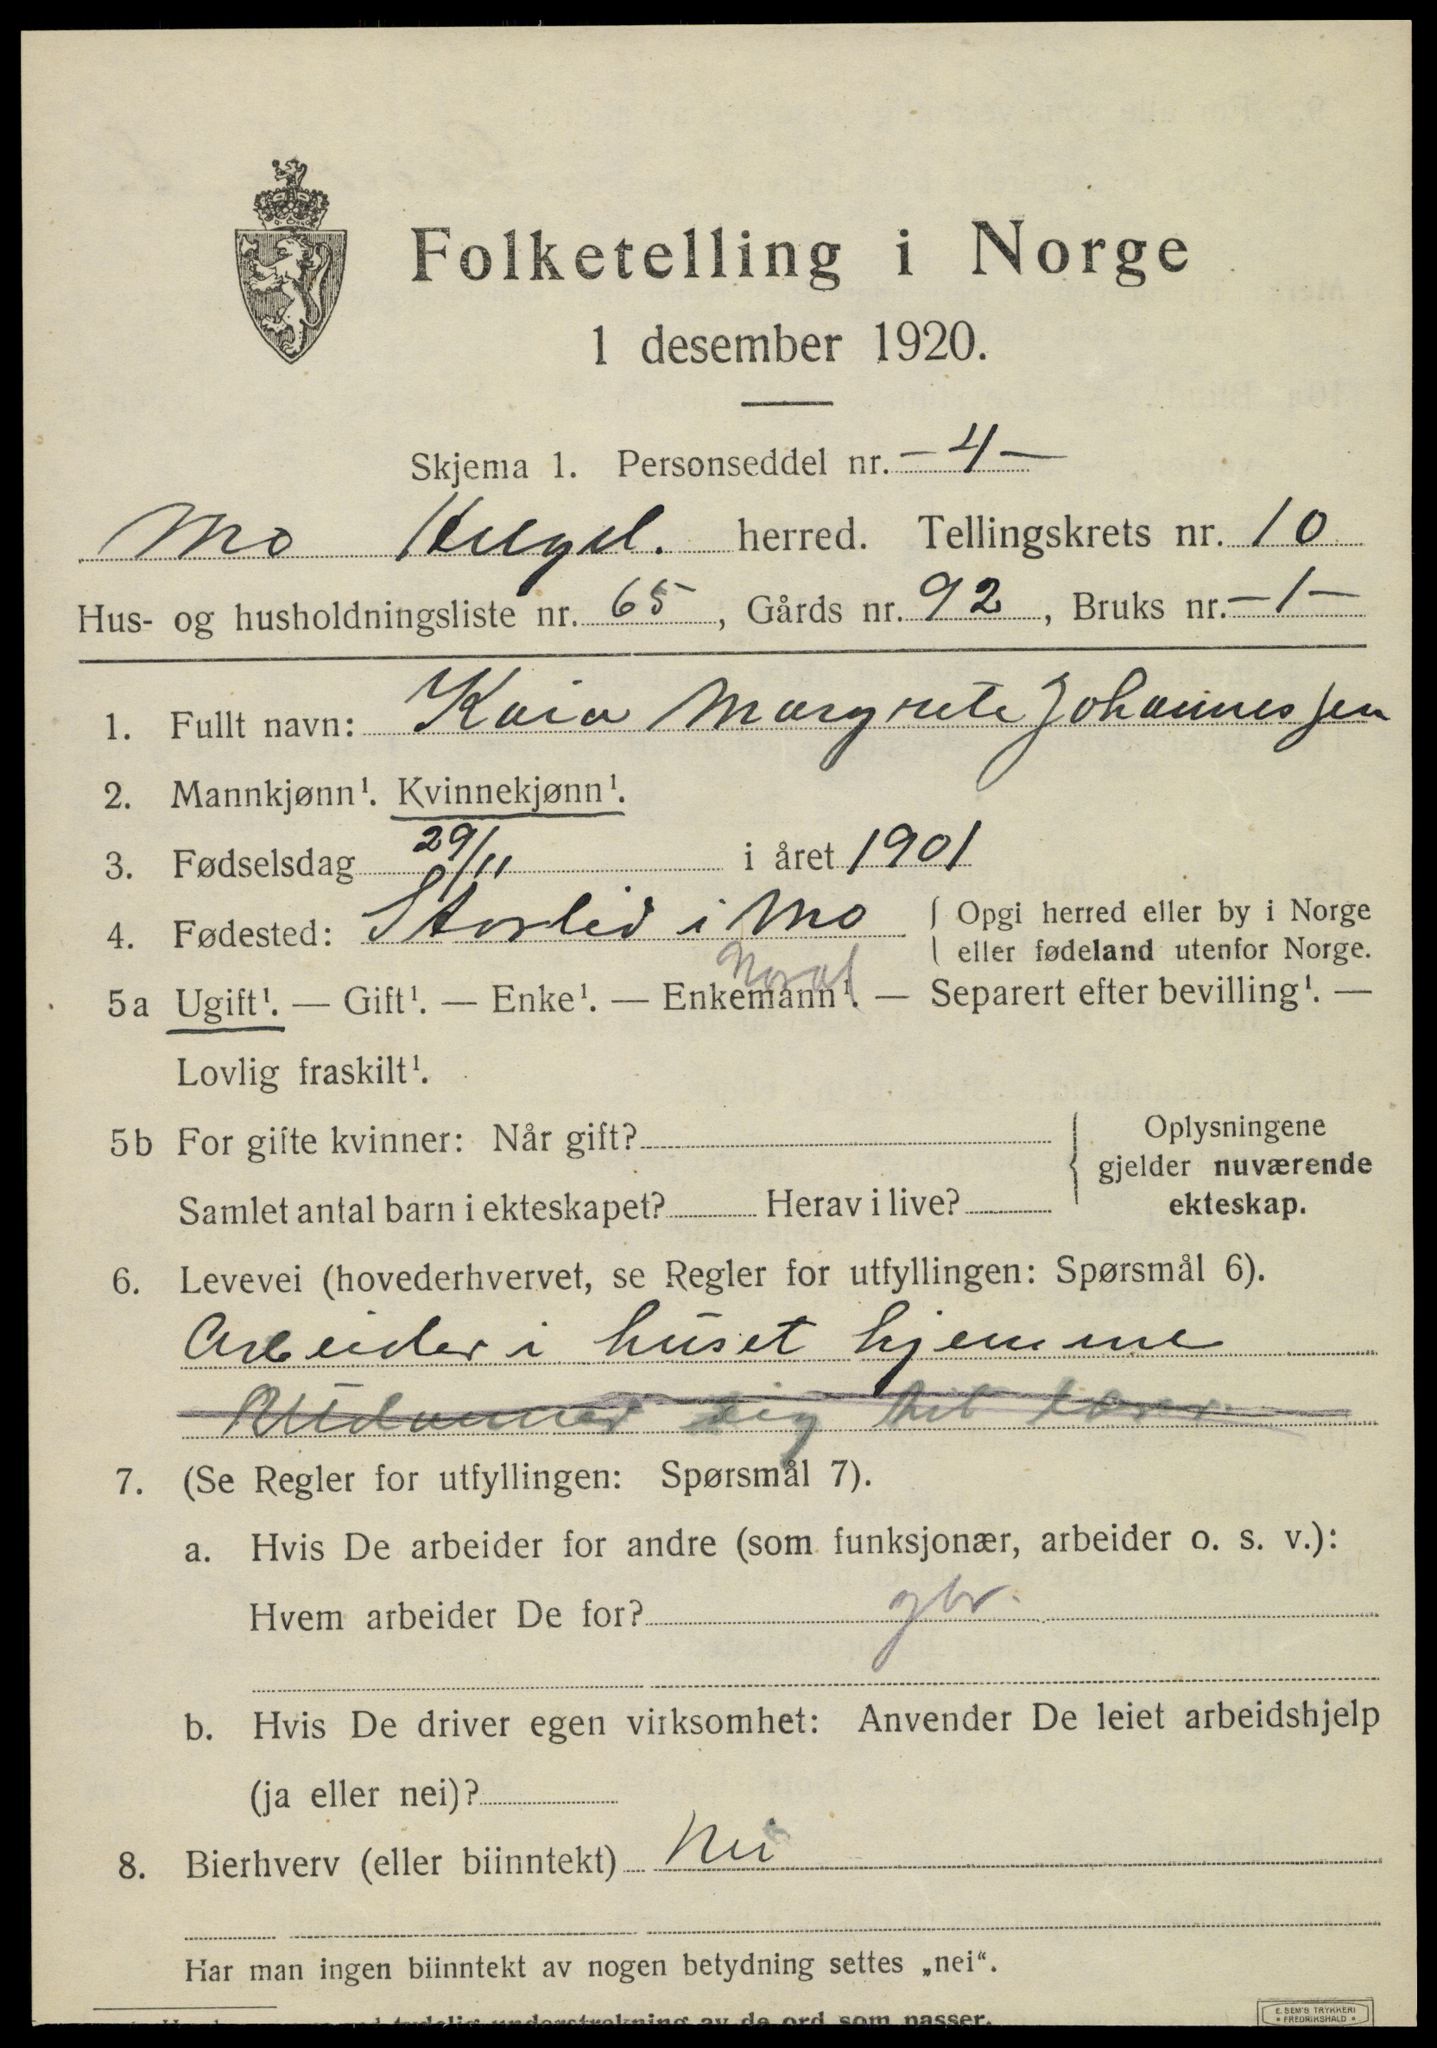 Folketelling i Norge
1 desember 1920.
Skjema 1. Personseddel nr. -4-
Mo Helgel. herred. Tellingskrets nr. 10
Hus- og husholdningsliste nr. 65, Gårds nr. 92, Bruks nr. -1-
1. Fullt navn: Kaia Margrete Johannessen
2. Mannkjønn¹. Kvinnekjønn¹.
3. Fødselsdag 29/11 i året 1901
4. Fødested: Storlid i Mo { Opgi herred eller by i Norge
eller fødeland utenfor Norge.
Noral
5a Ugift¹. — Gift¹. — Enke¹. — Enkemann¹. — Separert efter bevilling¹. —
Lovlig fraskilt¹.
5b For gifte kvinner: Når gift? { Oplysningene
gjelder nuværende
Samlet antal barn i ekteskapet? Herav i live? ekteskap.
6. Levevei (hovederhvervet, se Regler for utfyllingen: Spørsmål 6).
Arbeider i huset hjemme
Utdanner sig til lærer
7. (Se Regler for utfyllingen: Spørsmål 7).
a. Hvis De arbeider for andre (som funksjonær, arbeider o. s. v.):
Hvem arbeider De for? gbr.
b. Hvis De driver egen virksomhet: Anvender De leiet arbeidshjelp
(ja eller nei)?
8. Bierhverv (eller biinntekt) Nei
Har man ingen biinntekt av nogen betydning settes „nei“.
tydelig understrekning av de ord som passer.
E. SEM'S TRYKKERI
• FREDRIKSHALD •